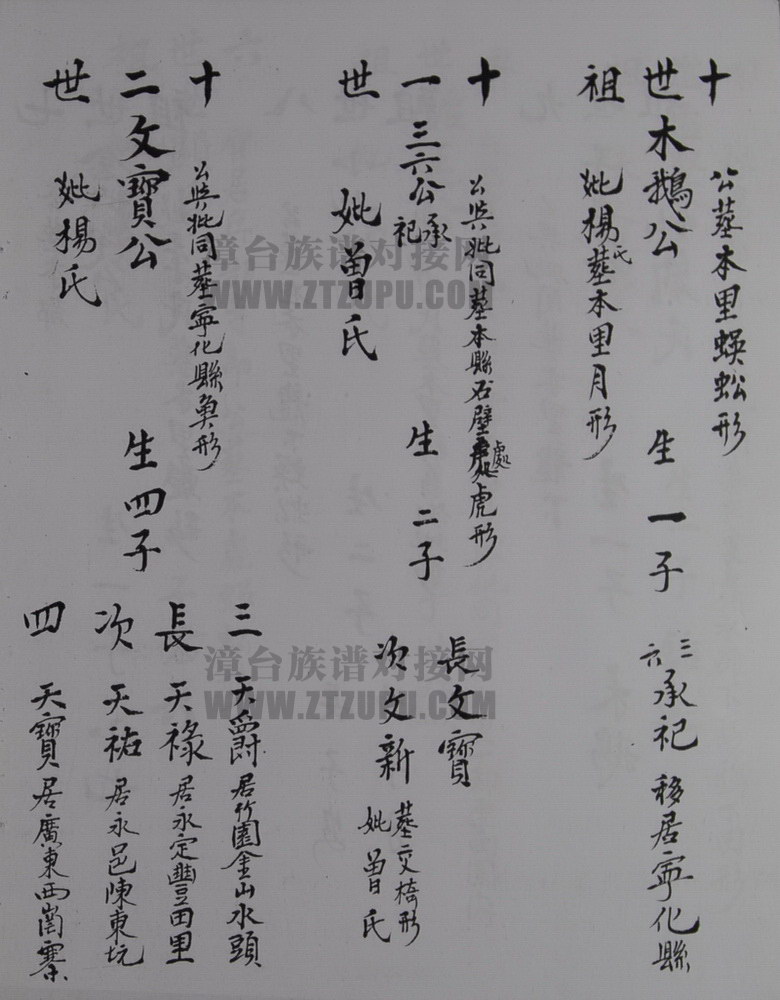 十世祖
公墓本里蜈蚣形
木鵝公 生一子
妣楊氏墓本里月形
三六承祀 移居寧化縣
十一世
公與妣同墓本縣石壁處虎形
三六公承祀 生二子
妣曾氏
長文寶
次文新 墓交椅形
妣曾氏
十二世
公與妣同墓寧化縣魚形
文寶公 生四子
妣楊氏
三 天爵 居竹園金山水頭
長 天祿 居永定豐田里
次 天祐 居永邑陳東坑
四 天寶 居廣東西崗寨
漳台族谱对接网
WWW.ZTZUPU.COM
漳台族谱对接网
WWW.ZTZUPU.COM